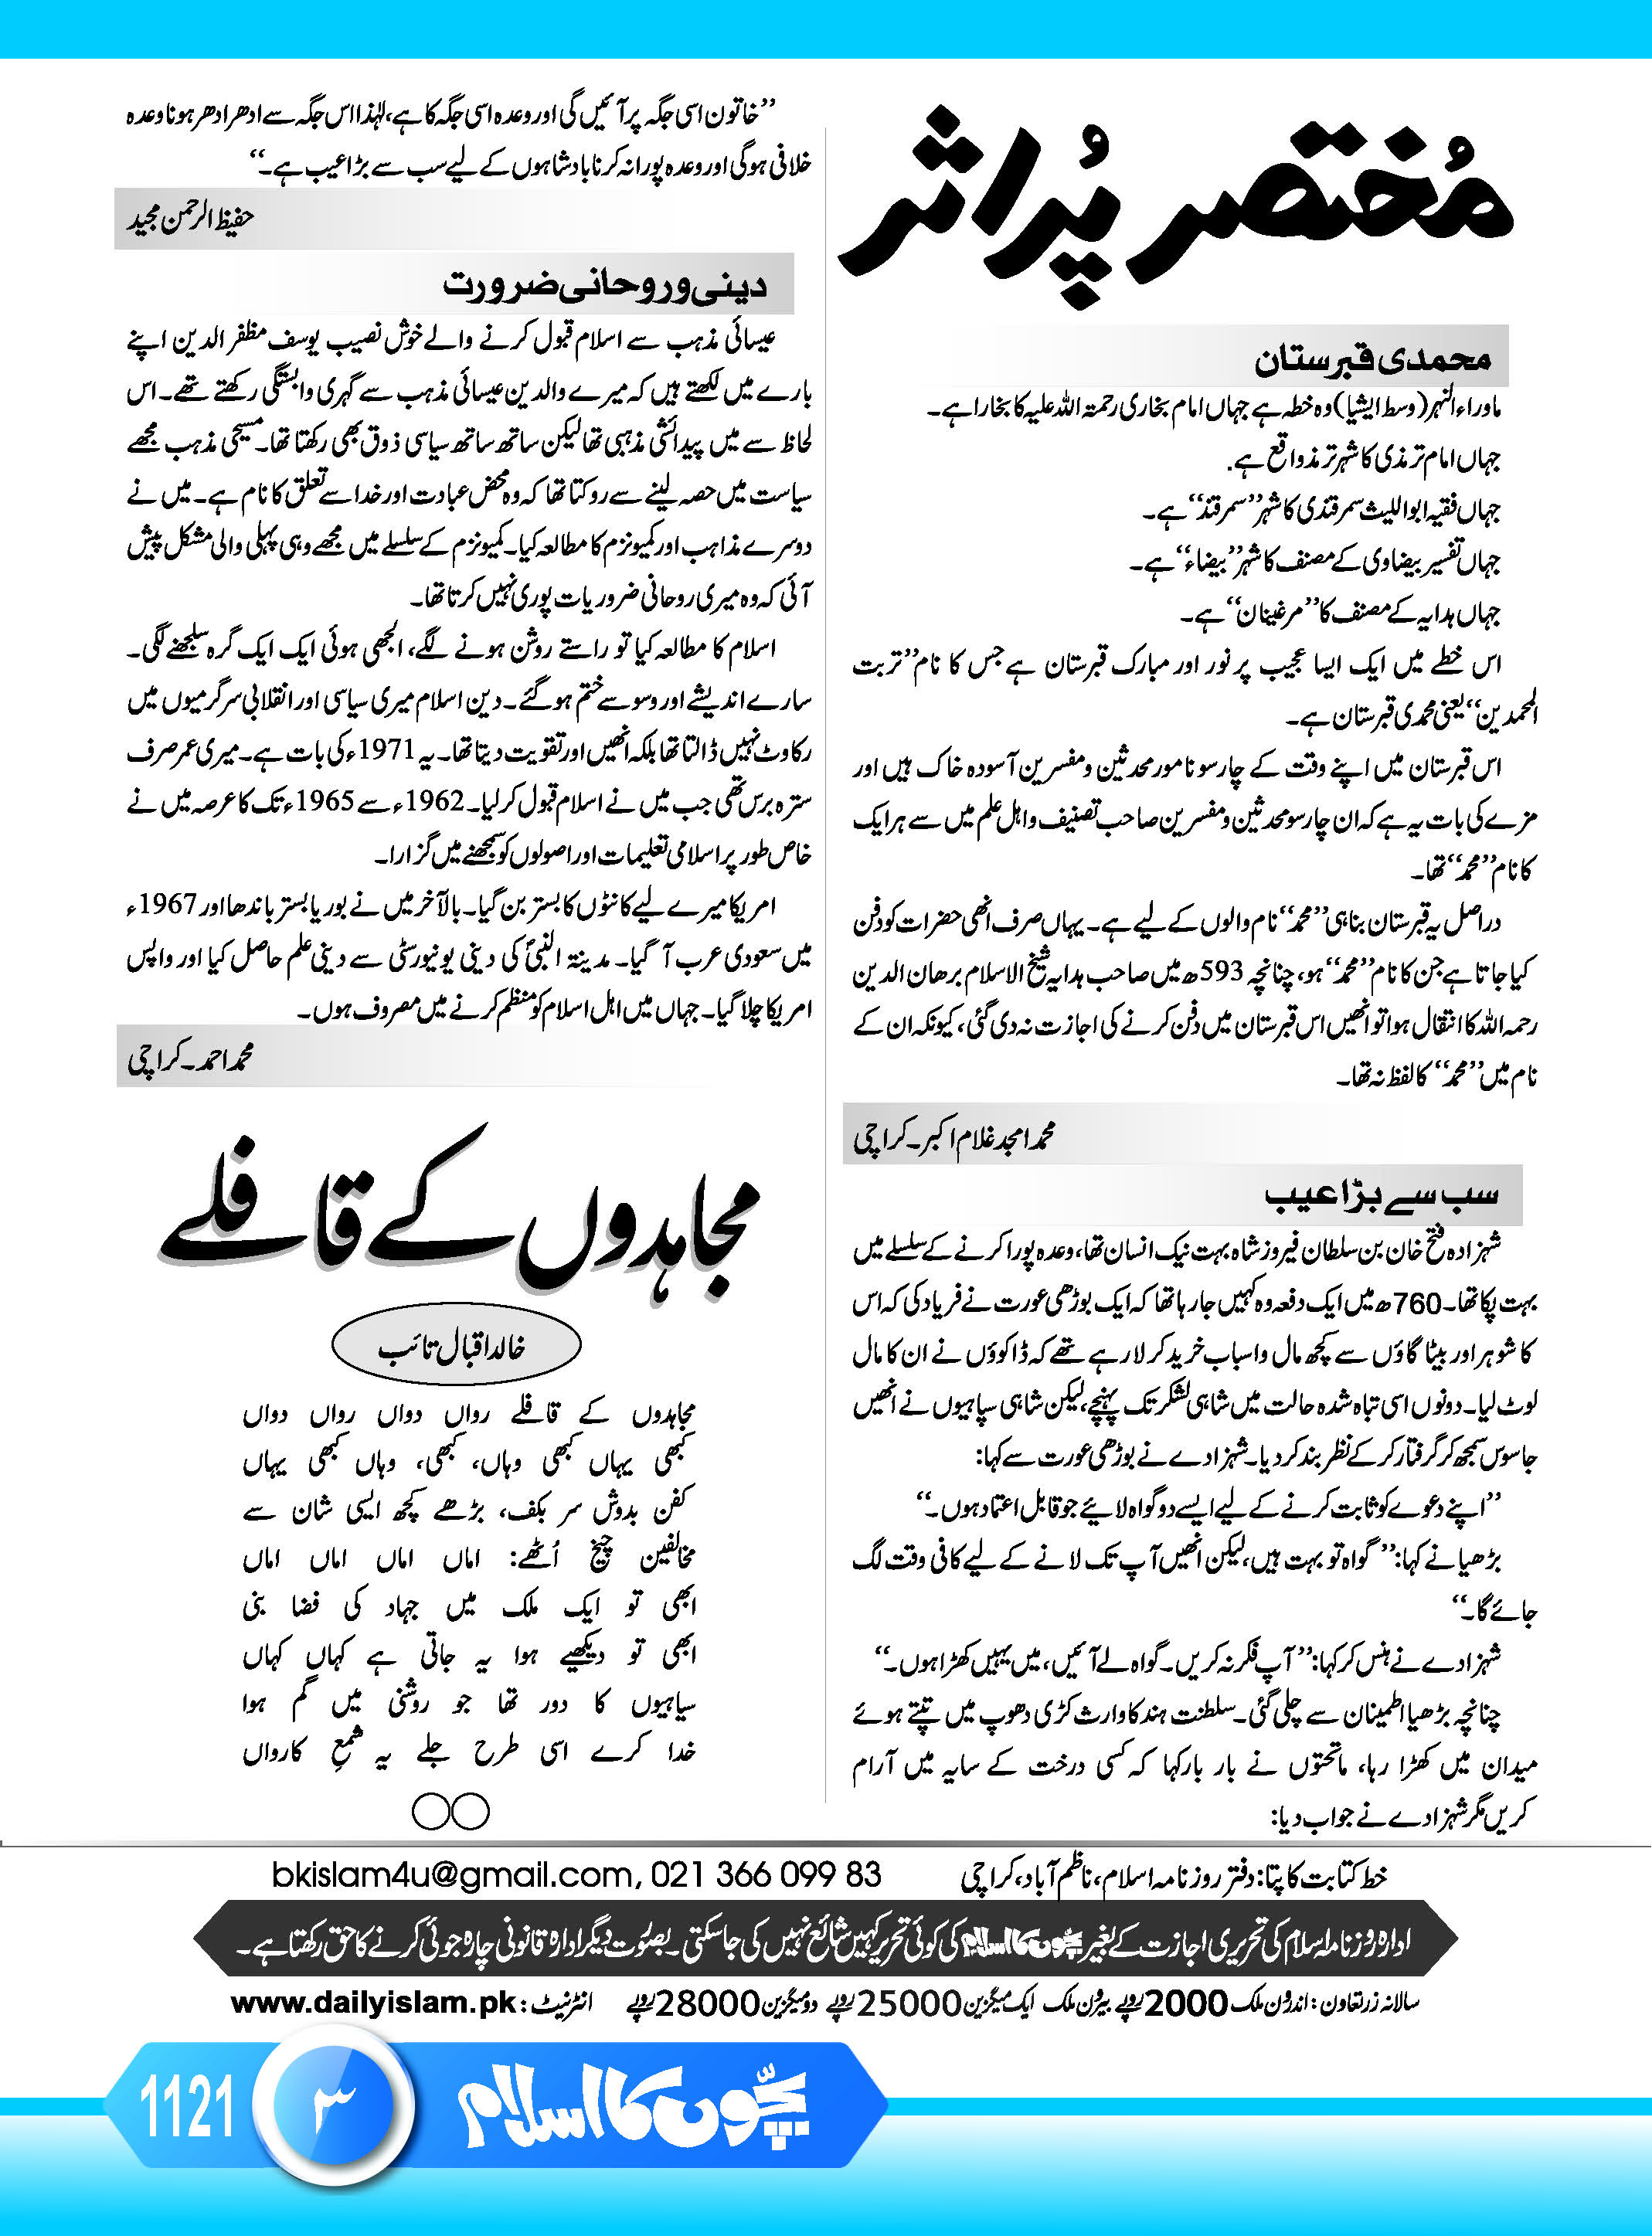 مُختصر پُراثر
محمدی قبرستان
ماوراء النہر (وسط ایشیا) وہ خطہ ہے جہاں امام بخاری رحمۃ اللہ علیہ کا بخارا ہے۔
جہاں امام ترمذی کا شہر ترمذ واقع ہے.
جہاں فقیہ ابو اللیث سمرقندی کا شہر ’’سمرقند‘‘ ہے۔
جہاں تفسیر بیضاوی کے مصنف کا شہر ’’بیضاء‘‘ ہے۔
جہاں ہدایہ کے مصنف کا ’’مرغینان‘‘ ہے۔
اس خطے میں ایک ایسا عجیب پر نور اور مبارک قبرستان ہے جس کا نام ’’تربت
المحمدین‘‘ یعنی محمدی قبرستان ہے۔
اس قبرستان میں اپنے وقت کے چار سو نامور محدثین و مفسرین آسودہ خاک ہیں اور
مزے کی بات یہ ہے کہ ان چار سو محدثین و مفسرین صاحب تصنیف و اہل علم میں سے ہر ایک
کا نام ’’محمد‘‘ تھا۔
دراصل یہ قبرستان بنا ہی ’’محمد‘‘ نام والوں کے لیے ہے۔ یہاں صرف انھی حضرات کو دفن
کیا جاتا ہے جن کا نام ’’محمد‘‘ ہو، چنانچہ 593ھ میں صاحب ہدایہ شیخ الاسلام برھان الدین
رحمہ اللہ کا انتقال ہوا تو انھیں اس قبرستان میں دفن کرنے کی اجازت نہ دی گئی، کیونکہ ان کے
نام میں ’’محمد‘‘ کا لفظ نہ تھا۔
محمد امجد غلام اکبر۔ کراچی
سب سے بڑا عیب
شہزادہ فتح خان بن سلطان فیروز شاہ بہت نیک انسان تھا، وعدہ پورا کرنے کے سلسلے میں
بہت پکا تھا۔ 760ھ میں ایک دفعہ وہ کہیں جا رہا تھا کہ ایک بوڑھی عورت نے فریاد کی کہ اس
کا شوہر اور بیٹا گاؤں سے کچھ مال و اسباب خرید کر لا رہے تھے کہ ڈاکوؤں نے ان کا مال
لوٹ لیا۔ دونوں اسی تباہ شدہ حالت میں شاہی لشکر تک پہنچے، لیکن شاہی سپاہیوں نے انھیں
جاسوس سمجھ کر گرفتار کر کے نظر بند کر دیا۔ شہزادے نے بوڑھی عورت سے کہا:
’’اپنے دعوے کو ثابت کرنے کے لیے ایسے دو گواہ لائیے جو قابل اعتماد ہوں۔‘‘
بڑھیا نے کہا: ’’گواہ تو بہت ہیں، لیکن انھیں آپ تک لانے کے لیے کافی وقت لگ
جائے گا۔‘‘
شہزادے نے ہنس کر کہا: ’’آپ فکر نہ کریں۔ گواہ لے آئیں، میں یہیں کھڑا ہوں۔‘‘
چنانچہ بڑھیا اطمینان سے چلی گئی۔ سلطنت ہند کا وارث کڑی دھوپ میں تپتے ہوئے
میدان میں کھڑا رہا، ماتحتوں نے بار بار کہا کہ کسی درخت کے سایہ میں آرام
کریں مگر شہزادے نے جواب دیا:
’’خاتون اسی جگہ پر آئیں گی اور وعدہ اسی جگہ کا ہے، لہٰذا اس جگہ سے ادھر ادھر ہونا وعدہ
خلافی ہو گی اور وعدہ پورا نہ کرنا بادشاہوں کے لیے سب سے بڑا عیب ہے۔‘‘
حفیظ الرحمن مجید
دینی و روحانی ضرورت
عیسائی مذہب سے اسلام قبول کرنے والے خوش نصیب یوسف مظفر الدین اپنے
بارے میں لکھتے ہیں کہ میرے والدین عیسائی مذہب سے گہری وابستگی رکھتے تھے۔ اس
لحاظ سے میں پیدائشی مذہبی تھا لیکن ساتھ ساتھ سیاسی ذوق بھی رکھتا تھا۔ مسیحی مذہب مجھے
سیاست میں حصہ لینے سے روکتا تھا کہ وہ محض عبادت اور خدا سے تعلق کا نام ہے۔ میں نے
دوسرے مذاہب اور کمیونزم کا مطالعہ کیا۔ کمیونزم کے سلسلے میں مجھے وہی پہلی والی مشکل پیش
آئی کہ وہ میری روحانی ضروریات پوری نہیں کرتا تھا۔
اسلام کا مطالعہ کیا تو راستے روشن ہونے لگے، الجھی ہوئی ایک ایک گرہ سلجھنے لگی۔
سارے اندیشے اور وسوسے ختم ہو گئے۔ دین اسلام میری سیاسی اور انقلابی سرگرمیوں میں
رکاوٹ نہیں ڈالتا تھا بلکہ انھیں اور تقویت دیتا تھا۔ یہ 1971ء کی بات ہے۔ میری عمر صرف
سترہ برس تھی جب میں نے اسلام قبول کر لیا۔ 1962ء سے 1965ء تک کا عرصہ میں نے
خاص طور پر اسلامی تعلیمات اور اصولوں کو سمجھنے میں گزارا۔
امریکا میرے لیے کانٹوں کا بستر بن گیا۔ بالآخر میں نے بوریا بستر باندھا اور 1967ء
میں سعودی عرب آ گیا۔ مدینۃ النبیؐ کی دینی یونیورسٹی سے دینی علم حاصل کیا اور واپس
امریکا چلا گیا۔ جہاں میں اہل اسلام کو منظم کرنے میں مصروف ہوں۔
محمد احمد۔ کراچی
مجاہدوں کے قافلے
خالد اقبال تائب
مجاہدوں کے قافلے رواں دواں رواں دواں
کبھی یہاں کبھی وہاں، کبھی، وہاں کبھی یہاں
کفن بدوش سر بکف، بڑھے کچھ ایسی شان سے
مخالفین چیخ اُٹھے: اماں اماں اماں اماں
ابھی تو ایک ملک میں جہاد کی فضا بنی
ابھی تو دیکھیے ہوا یہ جاتی ہے کہاں کہاں
سیاہیوں کا دور تھا جو روشنی میں گم ہوا
خدا کرے اسی طرح جلے یہ شمعِ کارواں
خط کتابت کا پتا: دفتر روزنامہ اسلام، ناظم آباد، کراچی bkislam4u@gmail.com, 021 366 099 83
ادارہ روزنامہ اسلام کی تحریری اجازت کے بغیر بچوں کا اسلام کی کوئی تحریر کہیں شائع نہیں کی جا سکتی۔ بصورت دیگر ادارہ قانونی چارہ جوئی کرنے کا حق رکھتا ہے۔
سالانہ زر تعاون: اندرون ملک 2000 روپے بیرون ملک ایک میگزین 25000 روپے دو میگزین 28000 روپے انٹرنیٹ: www.dailyislam.pk
بچّوں کا اسلام ۳ 1121